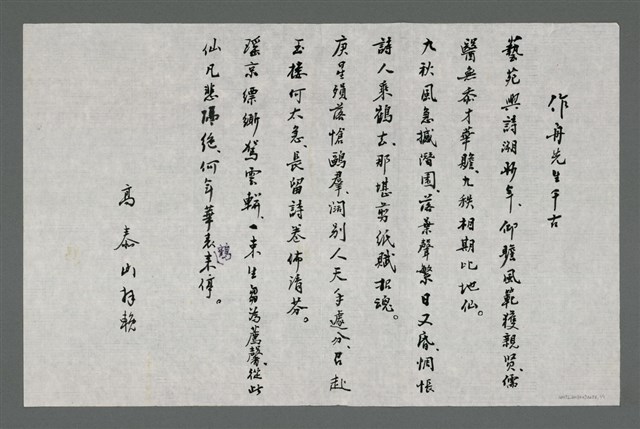 作舟先生千古
藝苑興詩溯妙年、仰瞻風範獲親賢、儒
醫無忝才華贍、九秩相期比地仙。
九秋風急撼階園、落葉聲繁日又昏、惆悵
詩人乘鶴去、那堪剪紙賦招魂。
庚星殞落愴鷗羣、闊別人天手遽分、召赴
玉樓何太急、長留詩卷佈清芬。
瑤京縹緲駕雲輧、一束生芻為薦馨、從此
仙凡悲隔絕、何年華表鶴來停。
高泰山拜輓